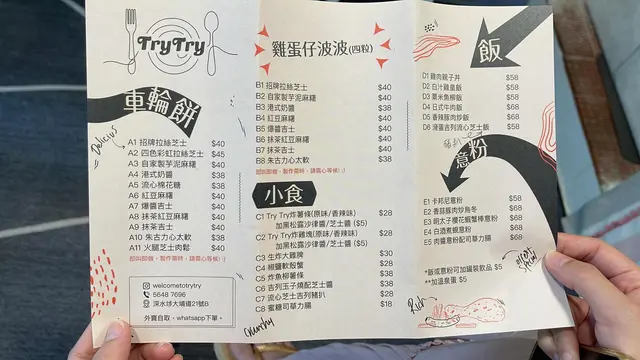 TryTry
車輪餅
Delicious
A1 招牌拉絲芝士 $40
A2 四色彩虹拉絲芝士 $45
A3 自家製芋泥麻糬 $40
A4 港式奶醬 $38
A5 流心棉花糖 $38
A6 紅豆麻糬 $40
A7 爆醬吉士 $40
A8 抹茶紅豆麻糬 $40
A9 抹茶吉士 $40
A10 朱古力心太軟 $38
A11 火腿芝士肉鬆 $40
即叫即做，製作需時，請耐心等候! :)
welcometotrytry
5648 7696
深水埗大埔道21號B
外賣自取，whatsapp下單。
雞蛋仔波波(四粒)
B1 招牌拉絲芝士 $40
B2 自家製芋泥麻糬 $40
B3 港式奶醬 $38
B4 紅豆麻糬 $40
B5 爆醬吉士 $40
B6 抹茶紅豆麻糬 $40
B7 抹茶吉士 $40
B8 朱古力心太軟 $38
即叫即做，製作需時，請耐心等候! :)
小食
C1 Try Try炸薯條(原味/香辣味) $28
加黑松露沙律醬/芝士醬 ($5)
C2 Try Try炸雞塊(原味/香辣味) $28
加黑松露沙律醬/芝士醬 ($5)
C3 生炸大雞脾 $30
C4 椒鹽軟殼蟹 $28
C5 炸魚柳薯條 $38
C6 吉列玉子燒配芝士醬 $38
C7 流心芝士吉列豬扒 $28
C8 蜜糖司華力腸 $18
Crunchy
飯
D1 雞肉親子丼 $58
D2 白汁雞皇飯 $58
D3 粟米魚柳飯 $58
D4 日式牛肉飯 $68
D5 香辣豚肉炒飯 $68
D6 滑蛋吉列流心芝士豬扒飯 $58
意粉
E1 卡邦尼意粉 $58
E2 香蒜豚肉炒烏冬 $68
E3 明太子櫻花蝦蟹棒意粉 $68
E4 白酒煮蜆意粉 $68
E5 肉醬意粉配司華力腸 $68
*飯或意粉可加罐裝飲品 $5
**加溫泉蛋 $5
Rich